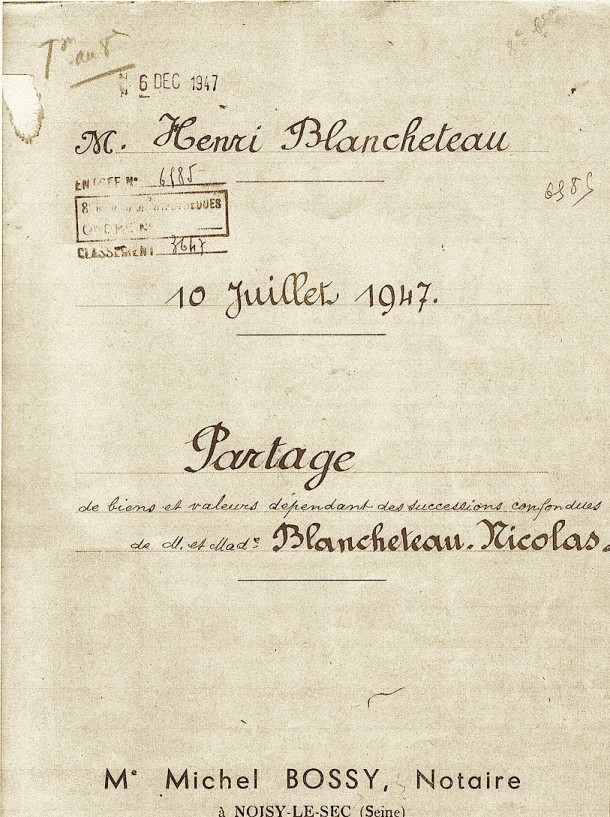 6 DEC 1947
M. Henri Blancheteau
ENTREE N° 6985
6985
CLASSEMENT 3647
10 Juillet 1947.
Partage
de biens et valeurs dépendant des successions confondues
de M. et Made Blancheteau-Nicolas.
Me Michel BOSSY, Notaire
à NOISY-LE-SEC (Seine)